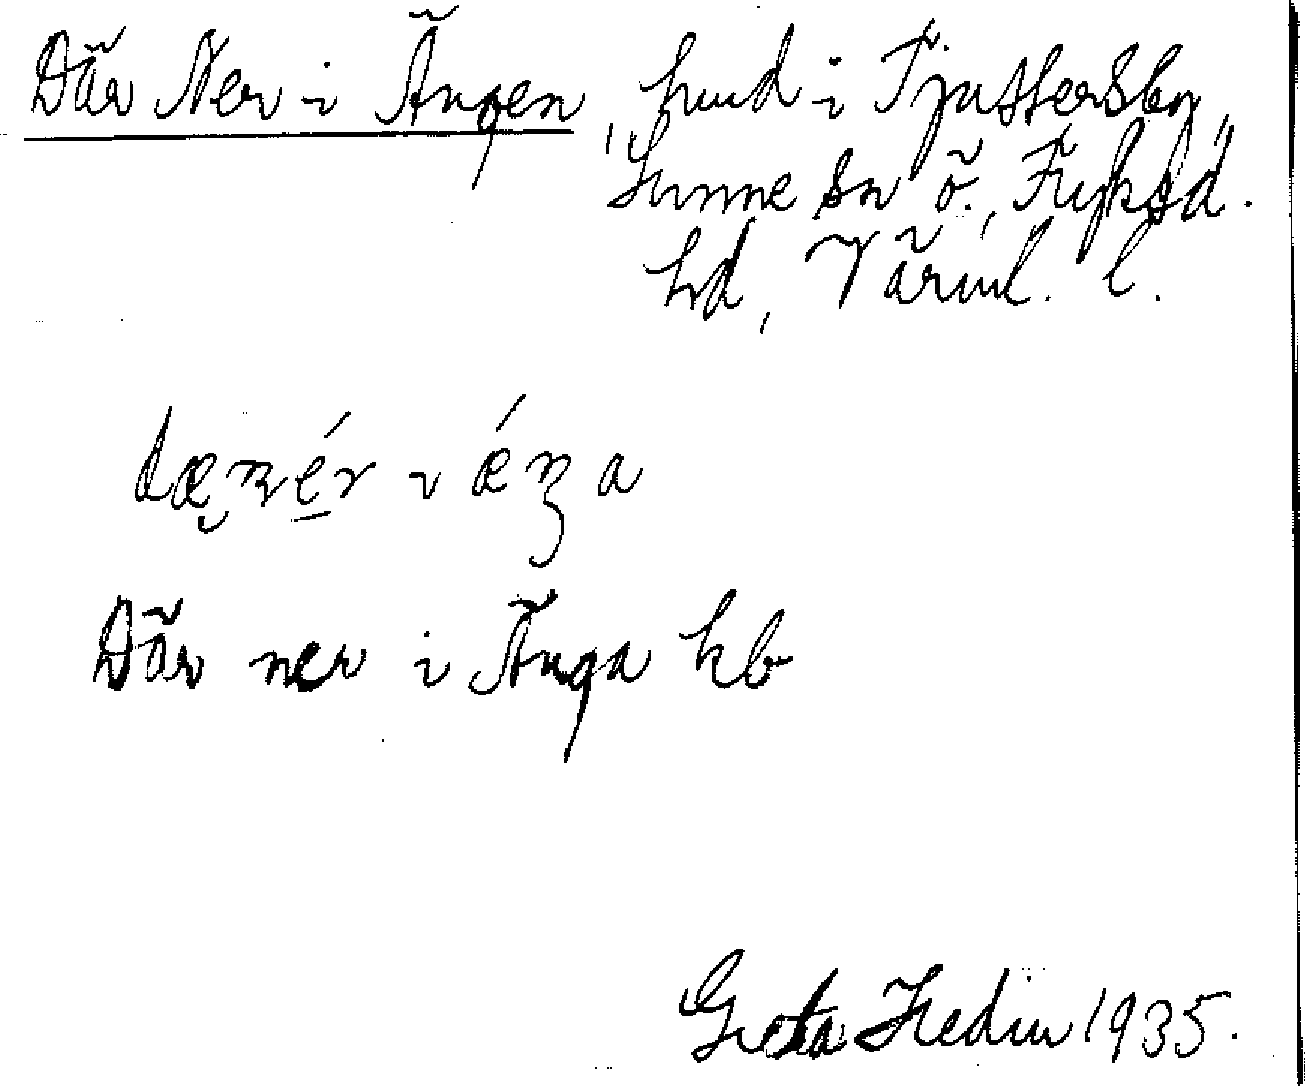 Där Ner i Ängen, hmd i Tjustersby,
Sunne sn ö., Fryksd.
hd, Värml. l.
dæ̬nér i ǽŋa
Där ner i Änga kb
Greta Hedin 1935.